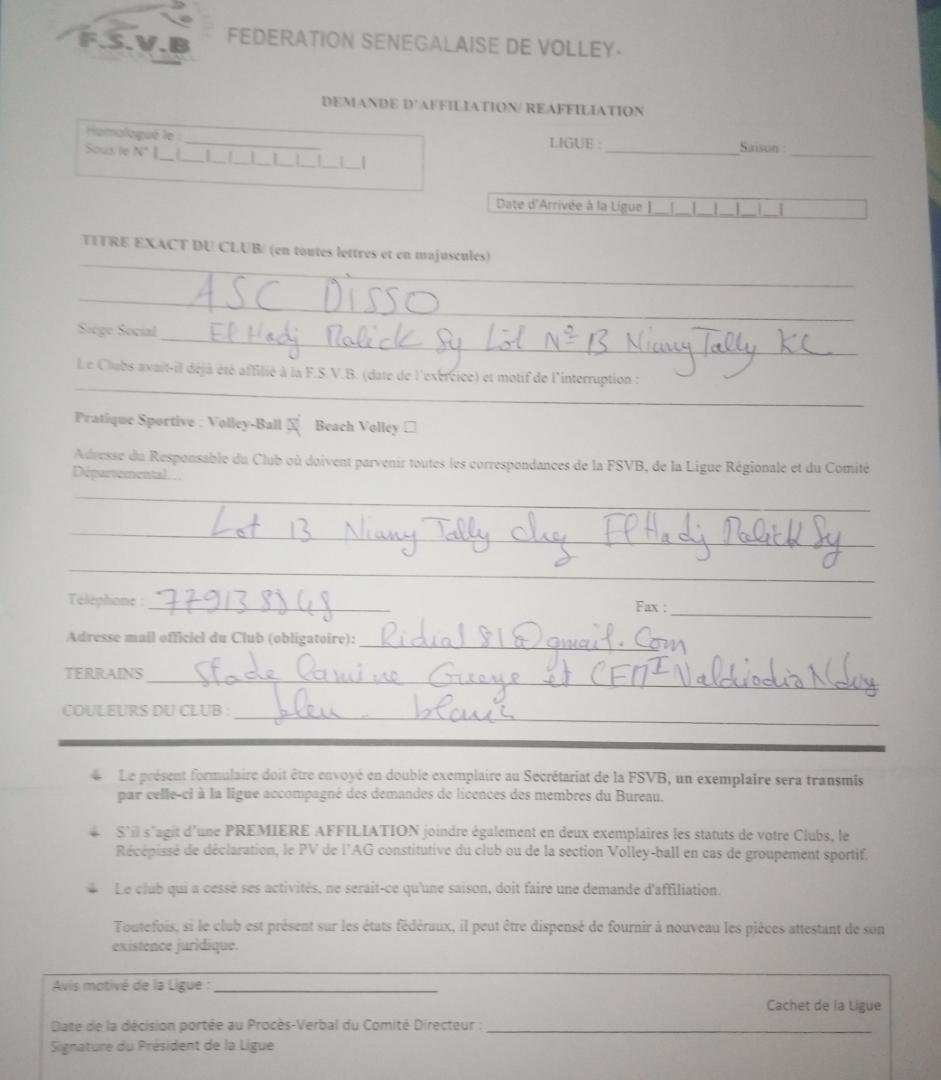 F.S.V.B
FEDERATION SENEGALAISE DE VOLLEY-
DEMANDE D'AFFILIATION/ REAFFILIATION
Homologué le :
Sous le N°
LIGUE : Saison :
Date d'Arrivée à la Ligue
TITRE EXACT DU CLUB/ (en toutes lettres et en majuscules)
ASC DISSO
Siège Social El Hadj Malick Sy Lot N° 13 Niary Tally
Le Clubs avait-il déjà été affilié à la F.S.V.B. (date de l'exercice) et motif de l'interruption :
Pratique Sportive : Volley-Ball ☒ Beach Volley ☐
Adresse du Responsable du Club où doivent parvenir toutes les correspondances de la FSVB, de la Ligue Régionale et du Comité
Départemental…
Lot 13 Niary Tally chez El Hadj Malick Sy
Téléphone : Fax :
Adresse mail officiel du Club (obligatoire):
TERRAINS Stade Lamine Gueye et
COULEURS DU CLUB : bleu - blanc
Le présent formulaire doit être envoyé en double exemplaire au Secrétariat de la FSVB, un exemplaire sera transmis
par celle-ci à la ligue accompagné des demandes de licences des membres du Bureau.
S'il s'agit d'une PREMIERE AFFILIATION joindre également en deux exemplaires les statuts de votre Clubs, le
Récépissé de déclaration, le PV de l'AG constitutive du club ou de la section Volley-ball en cas de groupement sportif.
Le club qui a cessé ses activités, ne serait-ce qu'une saison, doit faire une demande d'affiliation.
Toutefois, si le club est présent sur les états fédéraux, il peut être dispensé de fournir à nouveau les pièces attestant de son
existence juridique.
Avis motivé de la Ligue :
Cachet de la Ligue
Date de la décision portée au Procès-Verbal du Comité Directeur :
Signature du Président de la Ligue